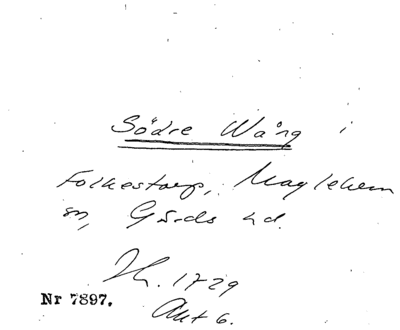 Södre Wång i
Folkestorp, Maglehem
sn, Gärds hd.
Th. 1729
Nr 7897.
Akt 6.